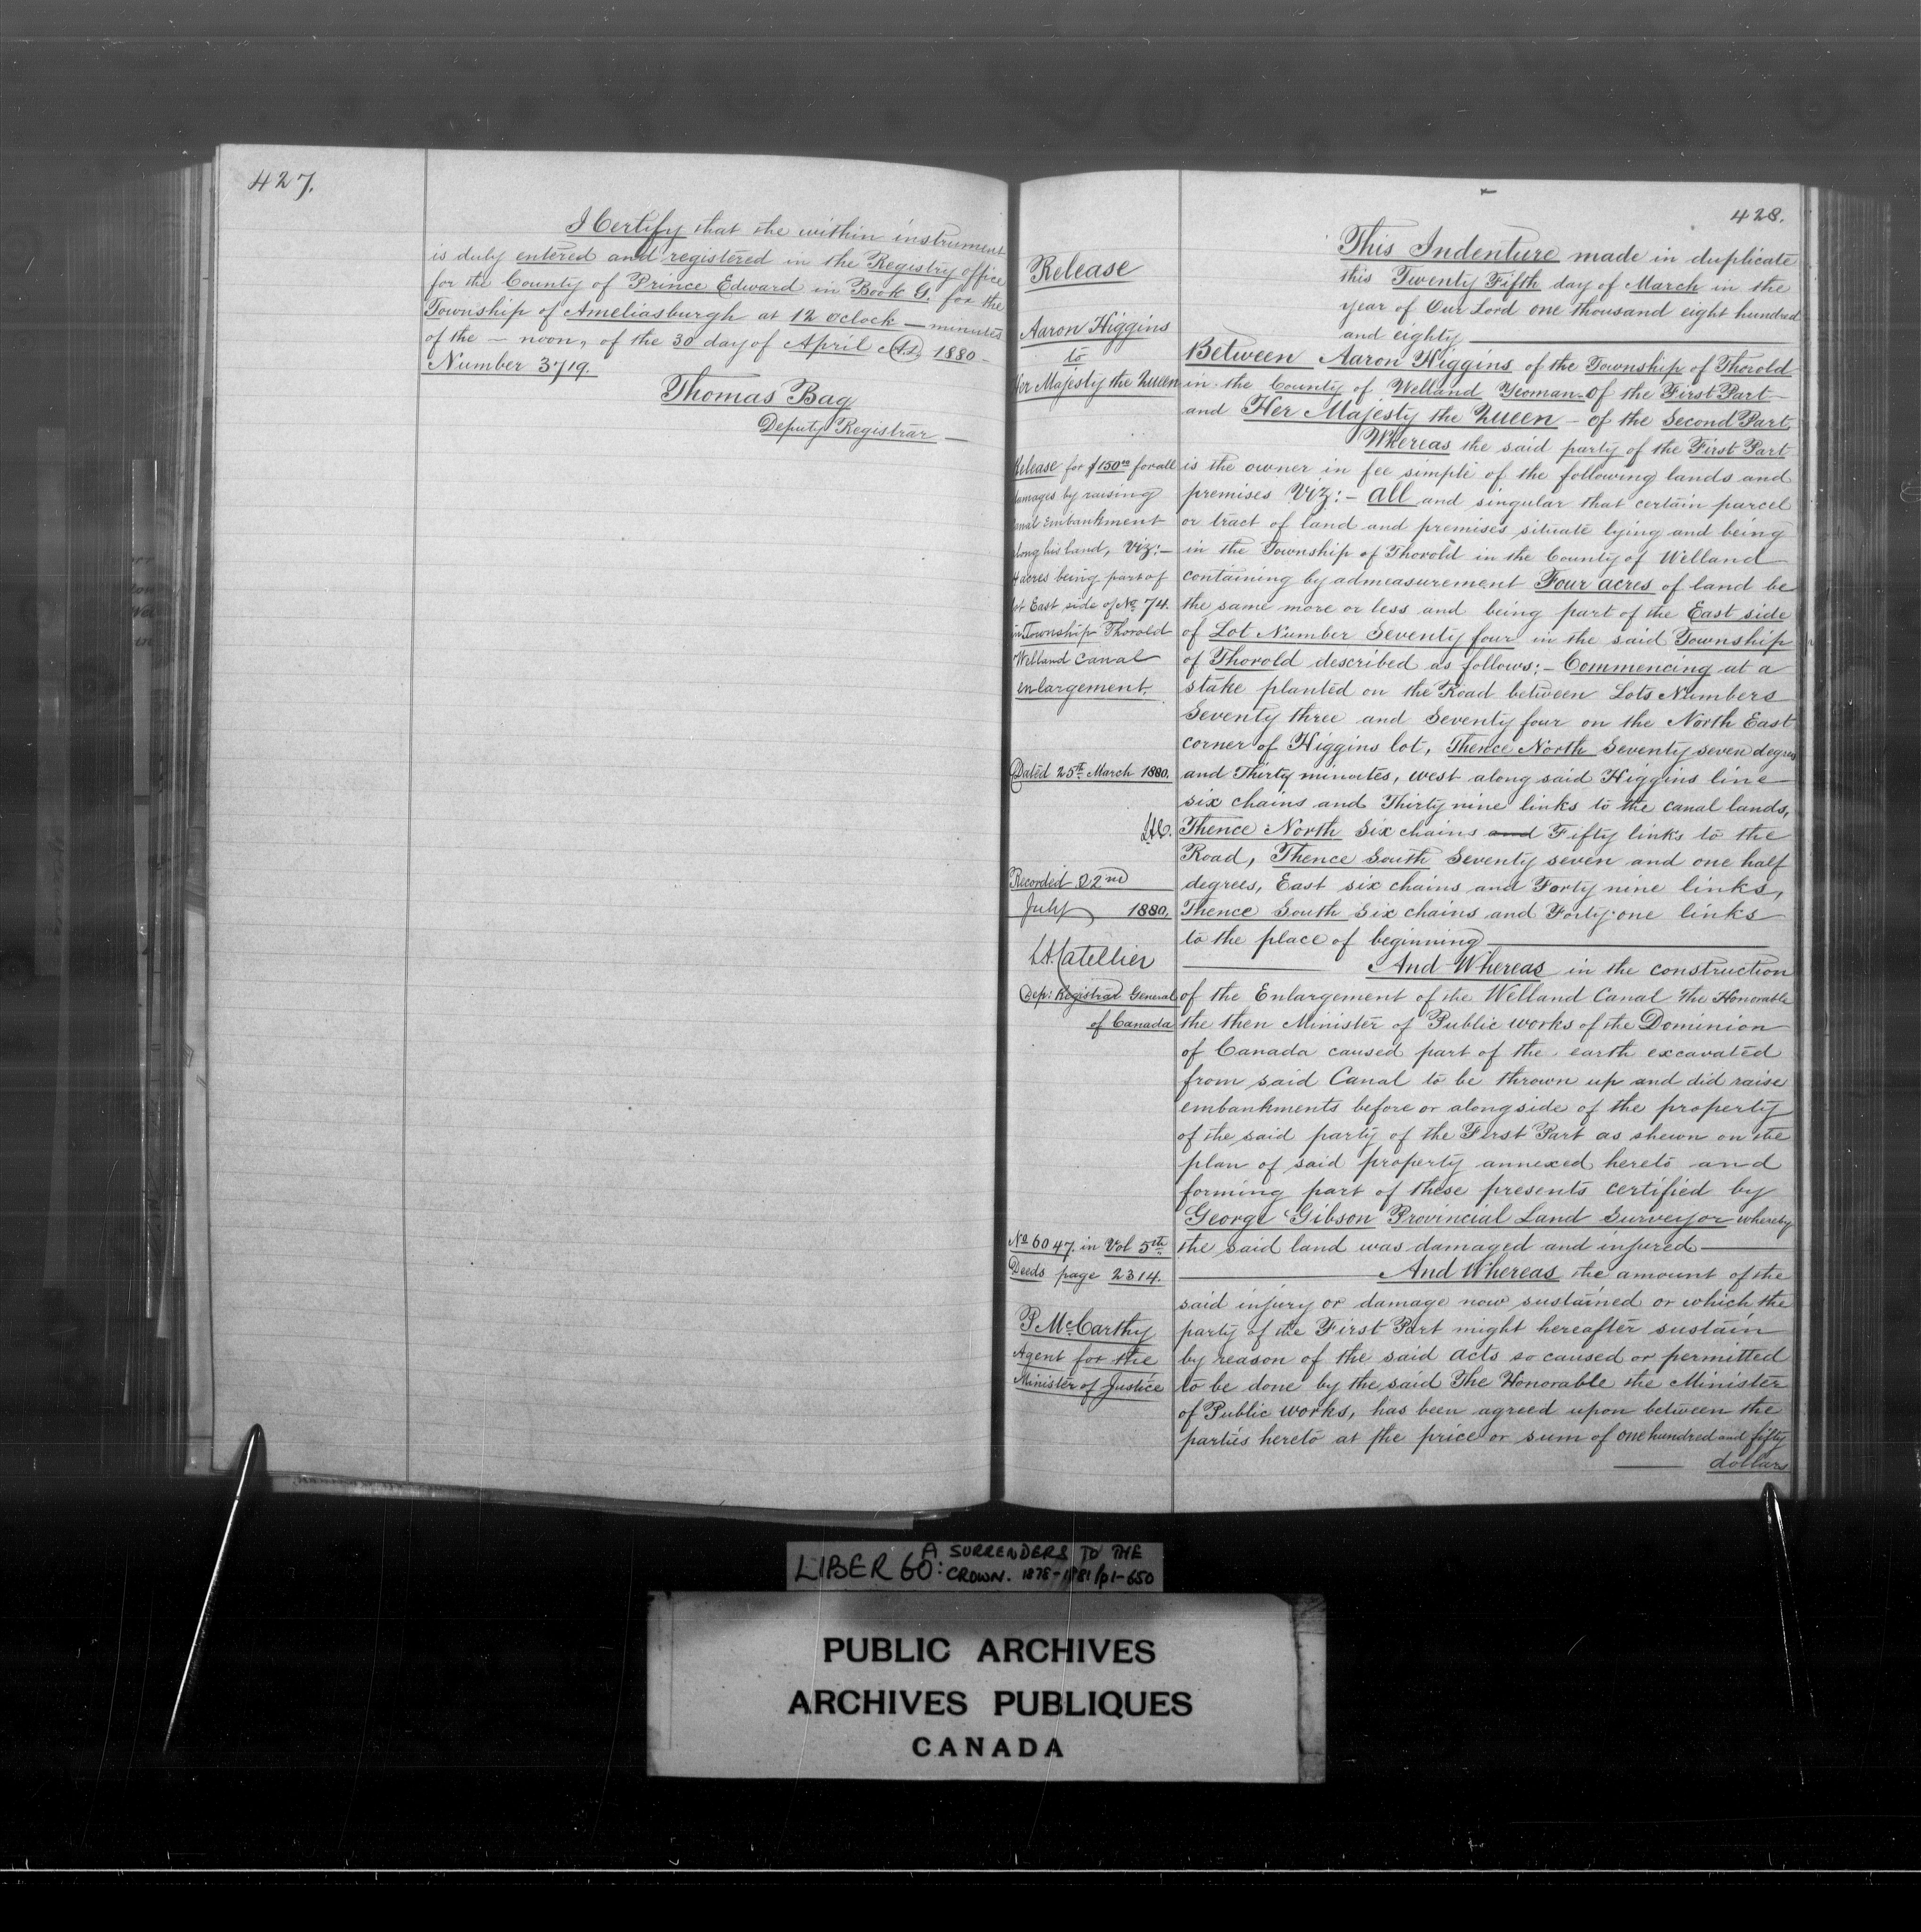 427.
I Certify that the within instrument
is duly entered and registered in the Registry office
for the County of Prince Edward in Book G. for the
Township of Ameliasburgh at 12 oclock — minutes
of the — noon, of the 30 day of April A.D. 1880 -
Number 3719.
Thomas Bag
Deputy Registrar —
428.
Release
Aaron Higgins
to
Her Majesty the Queen
Release for $150.00 for all
damages by raising
canal Embankment
along his land, Viz:—
4 acres being part of
lot East side of No 74.
in Township Thorold
Welland Canal
enlargement.
Dated 25th March 1880.
Recorded 22nd
July 1880.
L.A. Catellier
Dep: Registrar General
of Canada
No 6047. in Vol 5th
Deeds page 2314.
P McCarthy
Agent for the
Minister of Justice
This Indenture made in duplicate
this Twenty Fifth day of March in the
year of Our Lord one thousand eight hundred
and eighty
Between Aaron Higgins of the Township of Thorold
in the County of Welland Yeoman - of the First Part -
and Her Majesty the Queen - of the Second Part.
Whereas the said party of the First Part
is the owner in fee simple of the following lands and
premises Viz:- all and singular that certain parcel
or tract of land and premises situate lying and being
in the Township of Thorold in the County of Welland
containing by admeasurement Four acres of land be
the same more or less and being part of the East side
of Lot Number Seventy four in the said Township
of Thorold described as follows:- Commencing at a
stake planted on the Road between Lots Numbers
Seventy three and Seventy four on the North East
corner of Higgins lot, Thence North Seventy seven degrees
and Thirty minutes, west along said Higgins line
six chains and Thirty nine links to the canal lands,
Thence North Six chains and Fifty links to the
Road, Thence South Seventy seven and one half
degrees, East six chains and Forty nine links,
Thence South Six chains and Forty one links
to the place of beginning
And Whereas in the construction
of the Enlargement of the Welland Canal The Honorable
the then Minister of Public works of the Dominion
of Canada caused part of the earth excavated
from said Canal to be thrown up and did raise
embankments before or alongside of the property
of the said party of the First Part as shewn on the
plan of said property annexed hereto and
forming part of these presents certified by
George Gibson Provincial Land Surveyor whereby
the said land was damaged and injured
And Whereas the amount of the
said injury or damage now sustained or which the
party of the First Part might hereafter sustain
by reason of the said acts so caused or permitted
to be done by the said The Honorable the Minister
of Public works, has been agreed upon between the
parties hereto at the price or sum of one hundred and fifty
dollars
LIBER 60: A SURRENDERS TO THE
CROWN. 1878-1881 / p1-650
PUBLIC ARCHIVES
ARCHIVES PUBLIQUES
CANADA